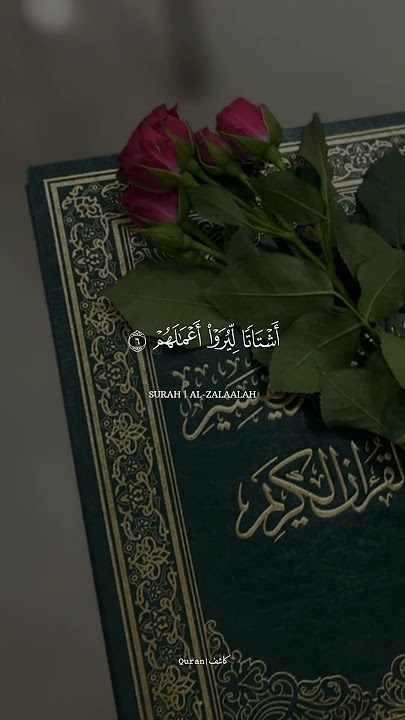 أَشْتَاتًا لِّيُرَوْا۟ أَعْمَـٰلَهُمْ ٦
SURAH | AL-ZALAALAH
القرآن الكريم
Quran|كاشف